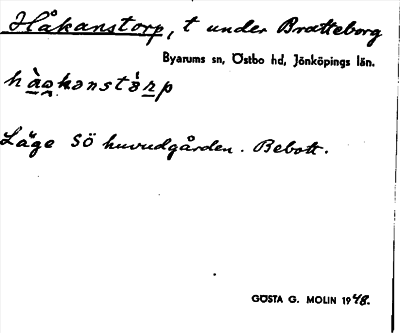 Håkanstorp, t under Bratteborg
Byarums sn, Östbo hd, Jönköpings län.
Läge sö huvudgården. Bebott.
GÖSTA G. MOLIN 1948.